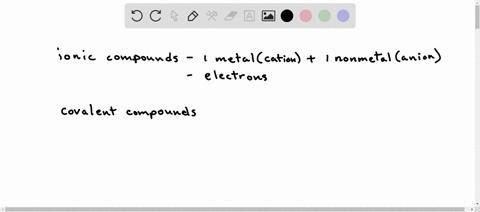 ionic compounds - 1 metal(cation) + 1 nonmetal(anion)
- electrons
covalent compounds